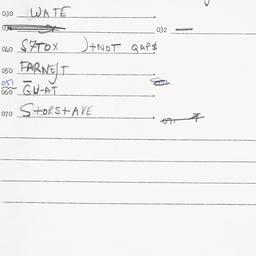 030 WATE
032 —
040 S7TOX )+NOT QAPS
050 FARNEST
051
060 GW-AT
070 S+ORS+AVE
071